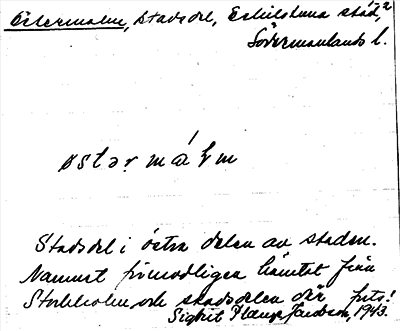 Östermalm, stadsdel, Eskilstuna stad, 2
Södermanlands l.
østǝr. má l m
Stadsdel i östra delen av staden.
Namnet förmodligen hämtat från
Stockholm och stadsdelen där
Sigrid Jacobson, 1943.